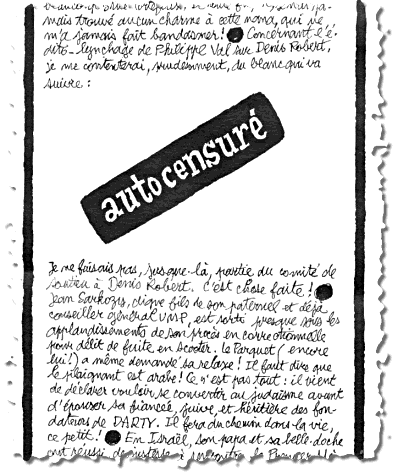 mais trouvé aucun charme à cette nana, qui ne
m'a jamais fait ! Concernant l'é-
dito-lynchage de Philippe Val sur Denis Robert,
je me contenterai, prudemment, du blanc qui va
suivre :
autocensuré
Je ne faisais pas, jusque-là, partie du comité de
soutien à Denis Robert. C'est chose faite !
Jean Sarkozy, digne fils de son paternel et déjà
conseiller général UMP, est sorti presque sous les
applaudissements de son procès en correctionnelle
pour délit de fuite en scooter. Le Parquet (encore
lui !) a même demandé sa relaxe ! Il faut dire que
le plaignant est arabe ! Ce n'est pas tout : il vient
de déclarer vouloir se convertir au judaïsme avant
d'épouser sa fiancée, juive, et héritière des fon-
dateurs de DARTY. Il fera du chemin dans la vie,
ce petit ! En Israël, son papa et sa belle-doche
ont réussi de justesse à rencontrer le